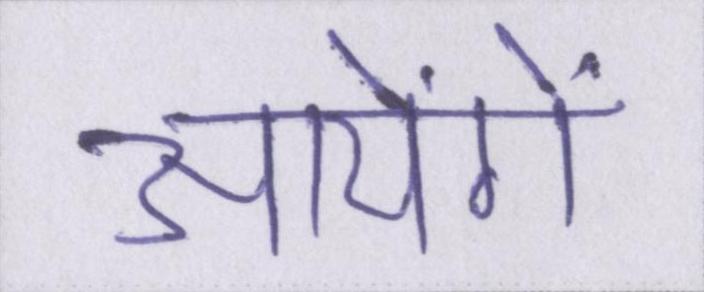 आयेंगें